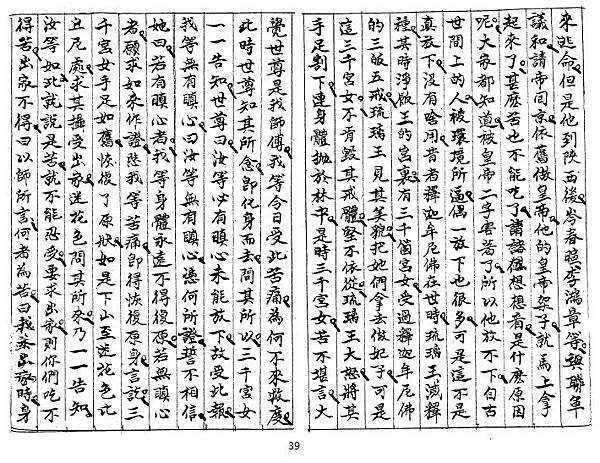 來逃命但是他到陝西後岑春煊李鴻章等與聯軍
議和請帝回京依舊做皇帝他的皇帝架子就馬上拿
起來了甚麼苦也不能吃了諸諸想想看是什麽原因
呢大家都知道被皇帝二字害苦了所以他放不下自古
世間上的人被環境所逼偶一放下也很多可是這不是
真放下沒有啥用昔者釋迦牟尼佛在世時琉璃王滅釋
種其時淨飯王的宮裏有三千箇宮女受過釋迦牟尼佛
的三皈五戒琉璃王見其美貌把她們拿去做妃子可是
這三千宮女不肯毀其戒體堅不依從琉璃王大怒將其
手足割下連身體拋於林中是時三千宮女苦不堪言大
覺世尊是我師傅我等今日受此苦痛為何不來救度
此時世尊知其所念即化身而去問其所以三千宮女
一一告知世尊曰汝等必有瞋心未能放下故受此報
我等無有瞋心曰汝等無有瞋心憑何所證誓不相信
她曰若有瞋心者我等身體永遠不得復原若無瞋心
者願求如來作證陛我等苦痛即得恢復原身言訖三
千宮女手足如舊恢復了原狀如是下山至蓮花色比
丑尼處求其攝受出家蓮花色問其所來乃一一告知
汝等如此就說是苦就不能忍受要求出家則你們吃不
得苦出家不得曰以師所言何者為苦曰我未出家時身
39